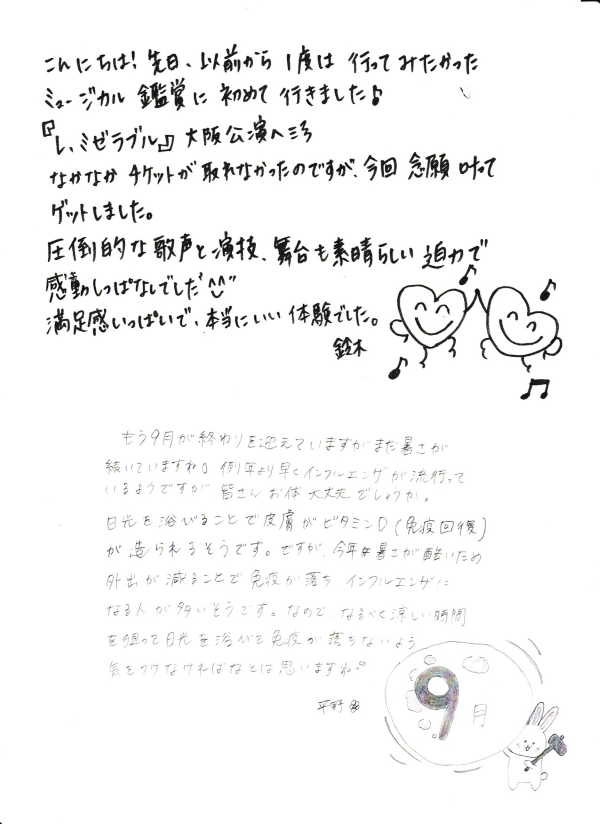 こんにちは! 先日、以前から1度は行ってみたかった
ミュージカル鑑賞に初めて行きました♪
『レ・ミゼラブル』大阪公演へ
なかなかチケットが取れなかったのですが、今回念願叶って
ゲットしました。
圧倒的な歌声と演技、舞台も素晴らしい迫力で
感動しっぱなしでした^^
満足感いっぱいで、本当にいい体験でした。
鈴木
もう9月が終わりを迎えていますがまだ暑さが
続いていますね。例年より早くインフルエンザが流行って
いるようですが皆さんお体大丈夫でしょうか。
日光を浴びることで皮膚がビタミンD(免疫回復)
が造られるそうです。ですが、今年は暑さが酷いため
外出が減ることで免疫が落ち、インフルエンザに
なる人が多いそうです。なので、なるべく涼しい時間
を狙って日光を浴びて免疫が落ちないよう
気をつけなければなとは思いますね。
平野
9月